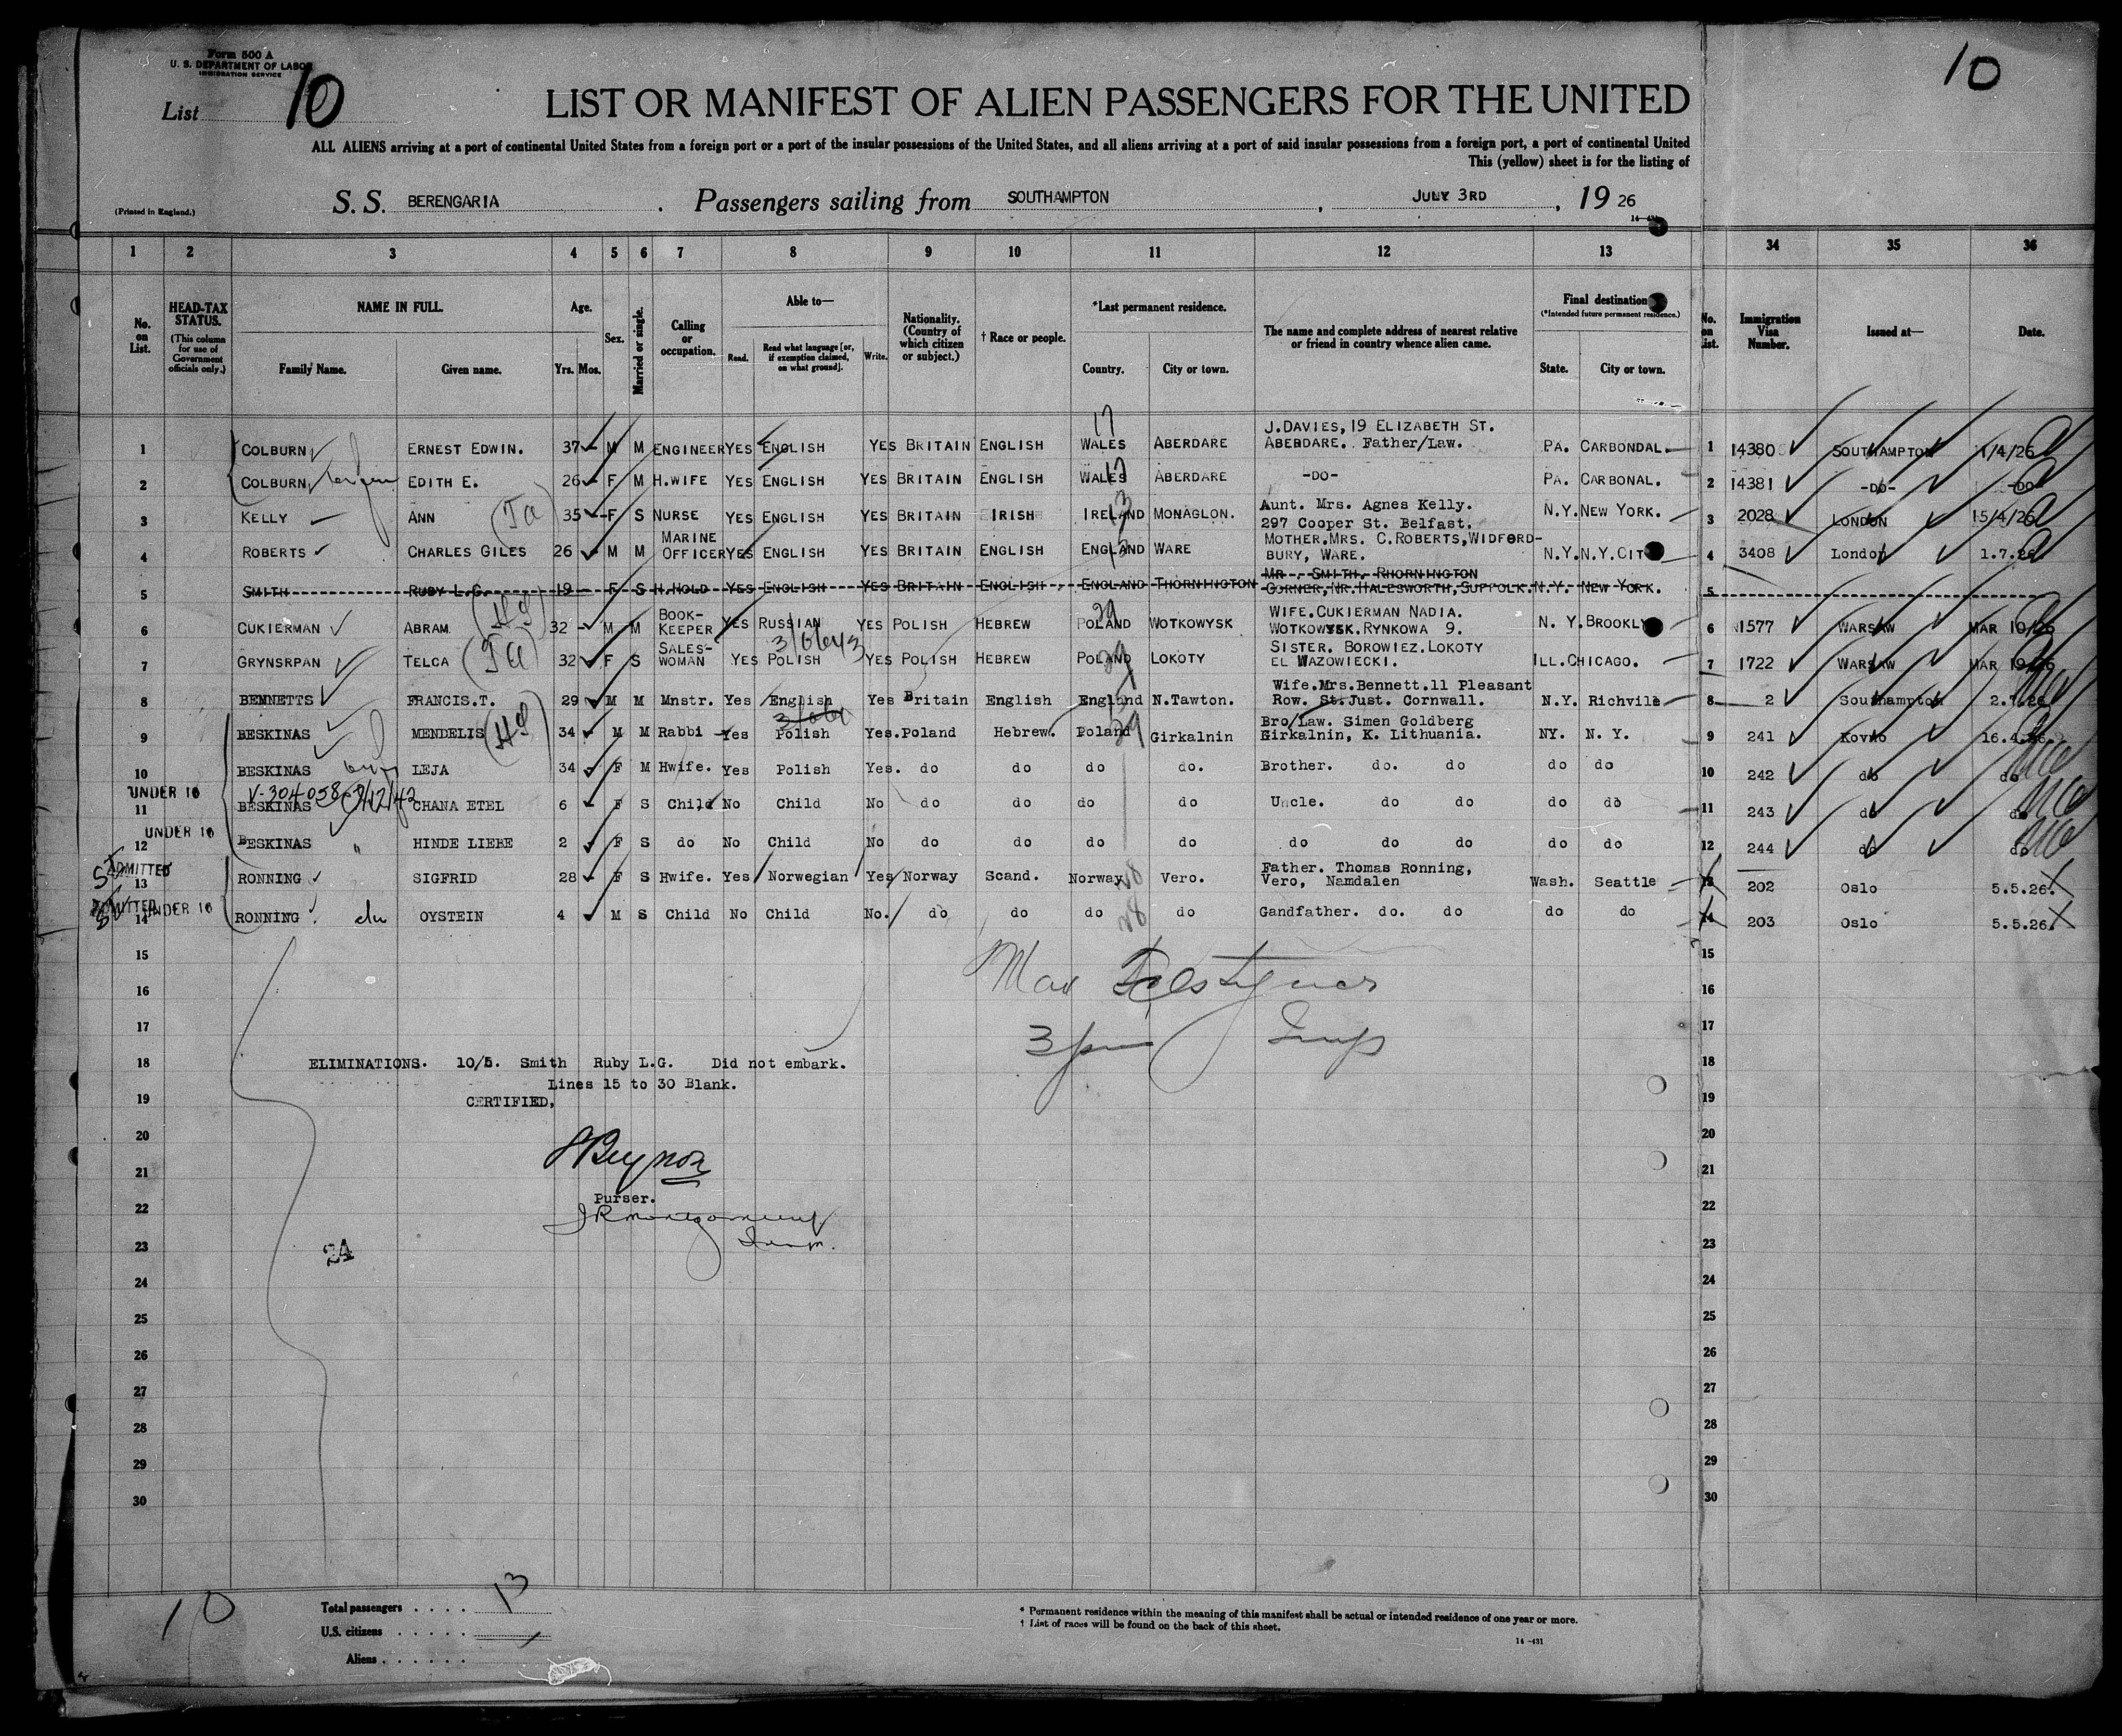 Form 500 A
U. S. DEPARTMENT OF LABOR
IMMIGRATION SERVICE
List 10
10
LIST OR MANIFEST OF ALIEN PASSENGERS FOR THE UNITED
ALL ALIENS arriving at a port of continental United States from a foreign port or a port of the insular possessions of the United States, and all aliens arriving at a port of said insular possessions from a foreign port, a port of continental United
This (yellow) sheet is for the listing of
(Printed in England.) S. S. BERENGARIA . Passengers sailing from SOUTHAMPTON , JULY 3RD , 19 26
1 2 3 4 5 6 7 8 9 10 11 12 13 34 35 36
No. on List. HEAD-TAX STATUS. (This column for use of Government officials only.) NAME IN FULL. Family Name. Given name. Age. Yrs. Mos. Sex. Married or single. Calling or occupation. Able to— Read. Read what language [or, if exemption claimed, on what ground]. Write. Nationality. (Country of which citizen or subject.) † Race or people. *Last permanent residence. Country. City or town. The name and complete address of nearest relative or friend in country whence alien came. Final destination (*Intended future permanent residence.) State. City or town. No. on List. Immigration Visa Number. Issued at— Date.
1 COLBURN ERNEST EDWIN. 37 M M ENGINEER YES ENGLISH YES BRITAIN ENGLISH WALES 17 ABERDARE J.DAVIES, 19 ELIZABETH ST. ABERDARE. Father/Law. PA. CARBONDAL. 1 14380 SOUTHAMPTON 1/4/26
2 COLBURN EDITH E. 26 F M H.WIFE YES ENGLISH YES BRITAIN ENGLISH WALES 17 ABERDARE -DO- PA. CARBONAL. 2 14381 -DO- -DO-
3 KELLY ANN (Ta) 35 F S NURSE YES ENGLISH YES BRITAIN IRISH IRELAND 13 MONAGLON. Aunt. Mrs. Agnes Kelly. 297 Cooper St. Belfast. N.Y. NEW YORK. 3 2028 LONDON 15/4/26
4 ROBERTS CHARLES GILES 26 M M MARINE OFFICER YES ENGLISH YES BRITAIN ENGLISH ENGLAND WARE MOTHER.MRS. C.ROBERTS, WIDFORD-BURY, WARE. N.Y. N.Y.CIT 4 3408 London 1.7.26
5 SMITH RUBY L.G. 19 F S H.HOLD YES ENGLISH YES BRITAIN ENGLISH ENGLAND THORNINGTON MR SMITH, RHORNINGTON CORNER, NR.HALESWORTH, SUFFOLK. N.Y. NEW YORK. 5
6 CUKIERMAN ABRAM 32 M M BOOK-KEEPER YES RUSSIAN YES POLISH HEBREW POLAND 29 WOTKOWYSK WIFE.CUKIERMAN NADIA. WOTKOWYSK.RYNKOWA 9. N. Y. BROOKLY 6 1577 WARSAW MAR 10/26
7 GRYNSRPAN TELCA (Ta) 32 F S SALES-WOMAN YES POLISH YES POLISH HEBREW POLAND 29 LOKOTY SISTER. BOROWIEZ.LOKOTY EL WAZOWIECKI. ILL. CHICAGO. 7 1722 WARSAW MAR 19/26
8 BENNETTS FRANCIS.T. 29 M M Mnstr. Yes English Yes Britain English England N.Tawton. Wife.Mrs.Bennett.11 Pleasant Row. St.Just. Cornwall. N.Y. Richvile 8 2 Southampton 2.7.26
9 BESKINAS MENDELIS 34 M M Rabbi Yes Polish Yes. Poland Hebrew. Poland 29 Girkalnin Bro/Law. Simen Goldberg Girkalnin, K. Lithuania. NY. N. Y. 9 241 Kovno 16.4.26
10 BESKINAS LEJA 34 F M Hwife. Yes Polish Yes. do do do do. Brother. do. do do do 10 242 do do
UNDER 16 V-304058
11 BESKINAS CHANA ETEL 6 F S Child No Child No do do do do Uncle. do do do do 11 243 do do
UNDER 16
12 BESKINAS " HINDE LIEBE 2 F S do No Child No do do do do do do do do do 12 244 do do
ADMITTED
13 RONNING SIGFRID 28 F S Hwife. Yes Norwegian Yes Norway Scand. Norway 28 Vero. Father. Thomas Ronning, Vero, Namdalen Wash. Seattle 13 202 Oslo 5.5.26.
ADMITTED UNDER 16
14 RONNING do OYSTEIN 4 M S Child No Child No. do do do 28 do Gandfather. do. do do do 14 203 Oslo 5.5.26.
15 15
16 Max 16
17 3 pm Insp 17
18 ELIMINATIONS. 10/5. Smith Ruby L.G. Did not embark. 18
Lines 15 to 30 Blank.
19 CERTIFIED, 19
20 20
21 21
Purser.
22 JRMontgomery 22
23 24 23
24 24
25 25
26 26
27 27
28 28
29 29
30 30
10
Total passengers . . . . 13
U.S. citizens . . . . .
Aliens . . . . . .
* Permanent residence within the meaning of this manifest shall be actual or intended residence of one year or more.
† List of races will be found on the back of this sheet.
14-431